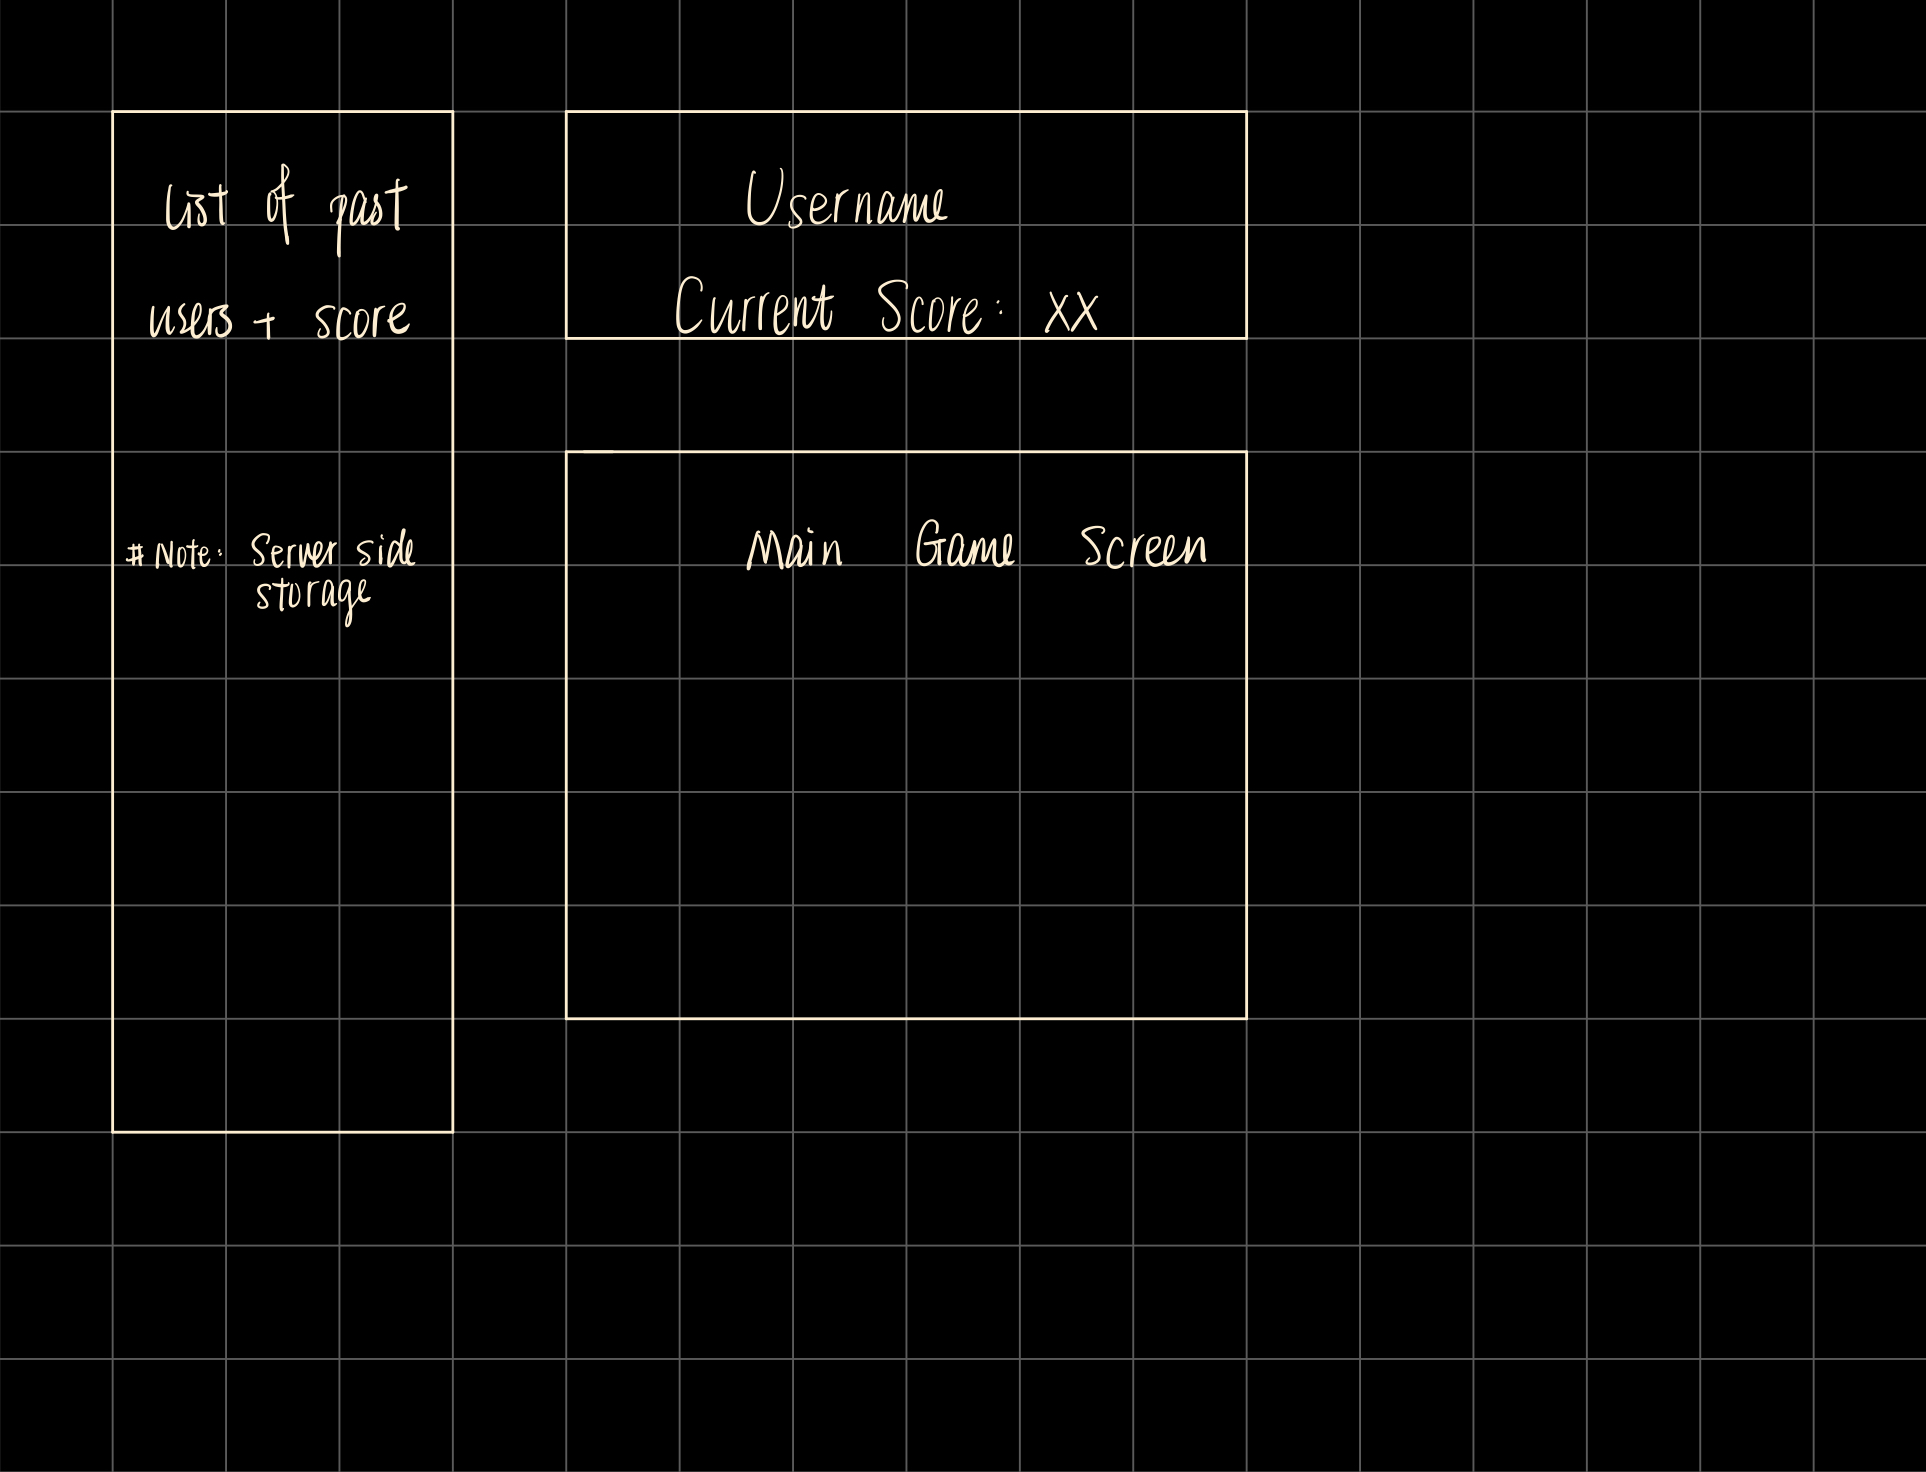 List of past
users + score
# Note: Server side
storage
Username
Current Score: XX
Main Game Screen